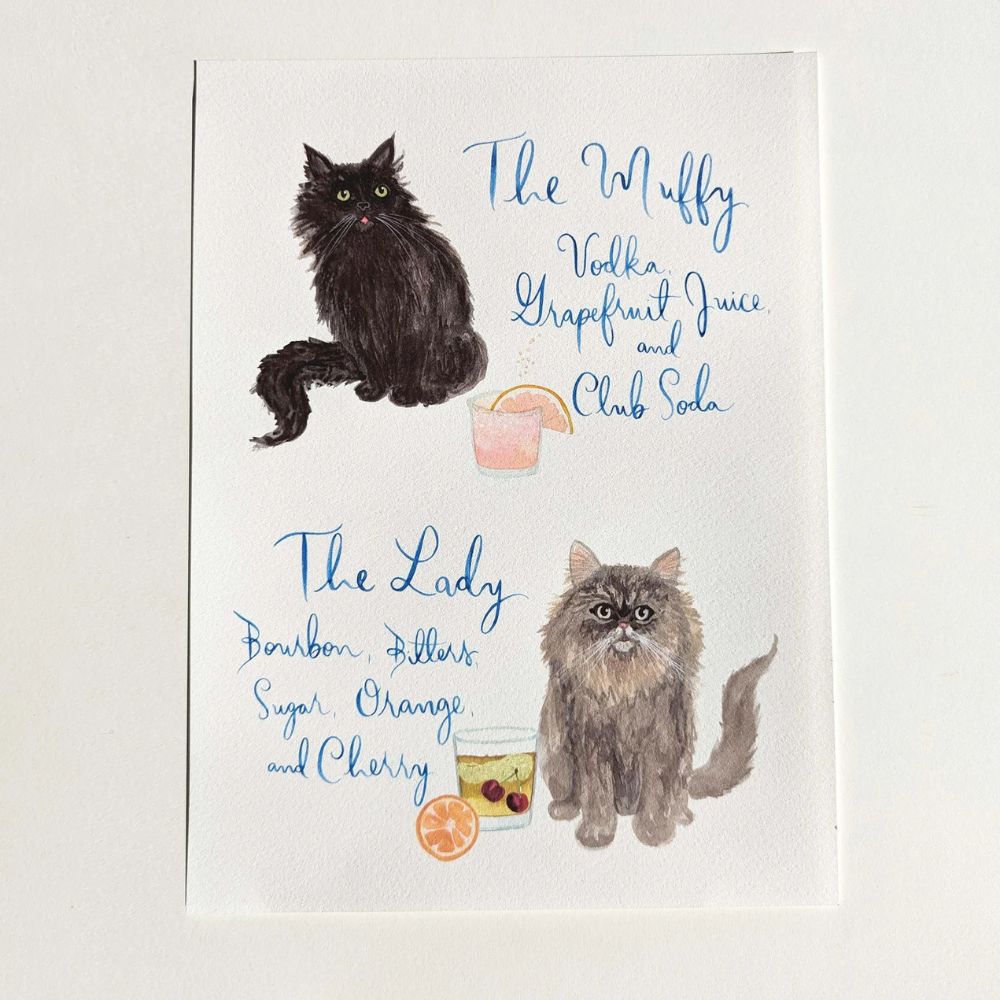 The Muffy
Vodka,
Grapefruit Juice,
and
Club Soda
The Lady
Bourbon, Bitters,
Sugar, Orange,
and Cherry